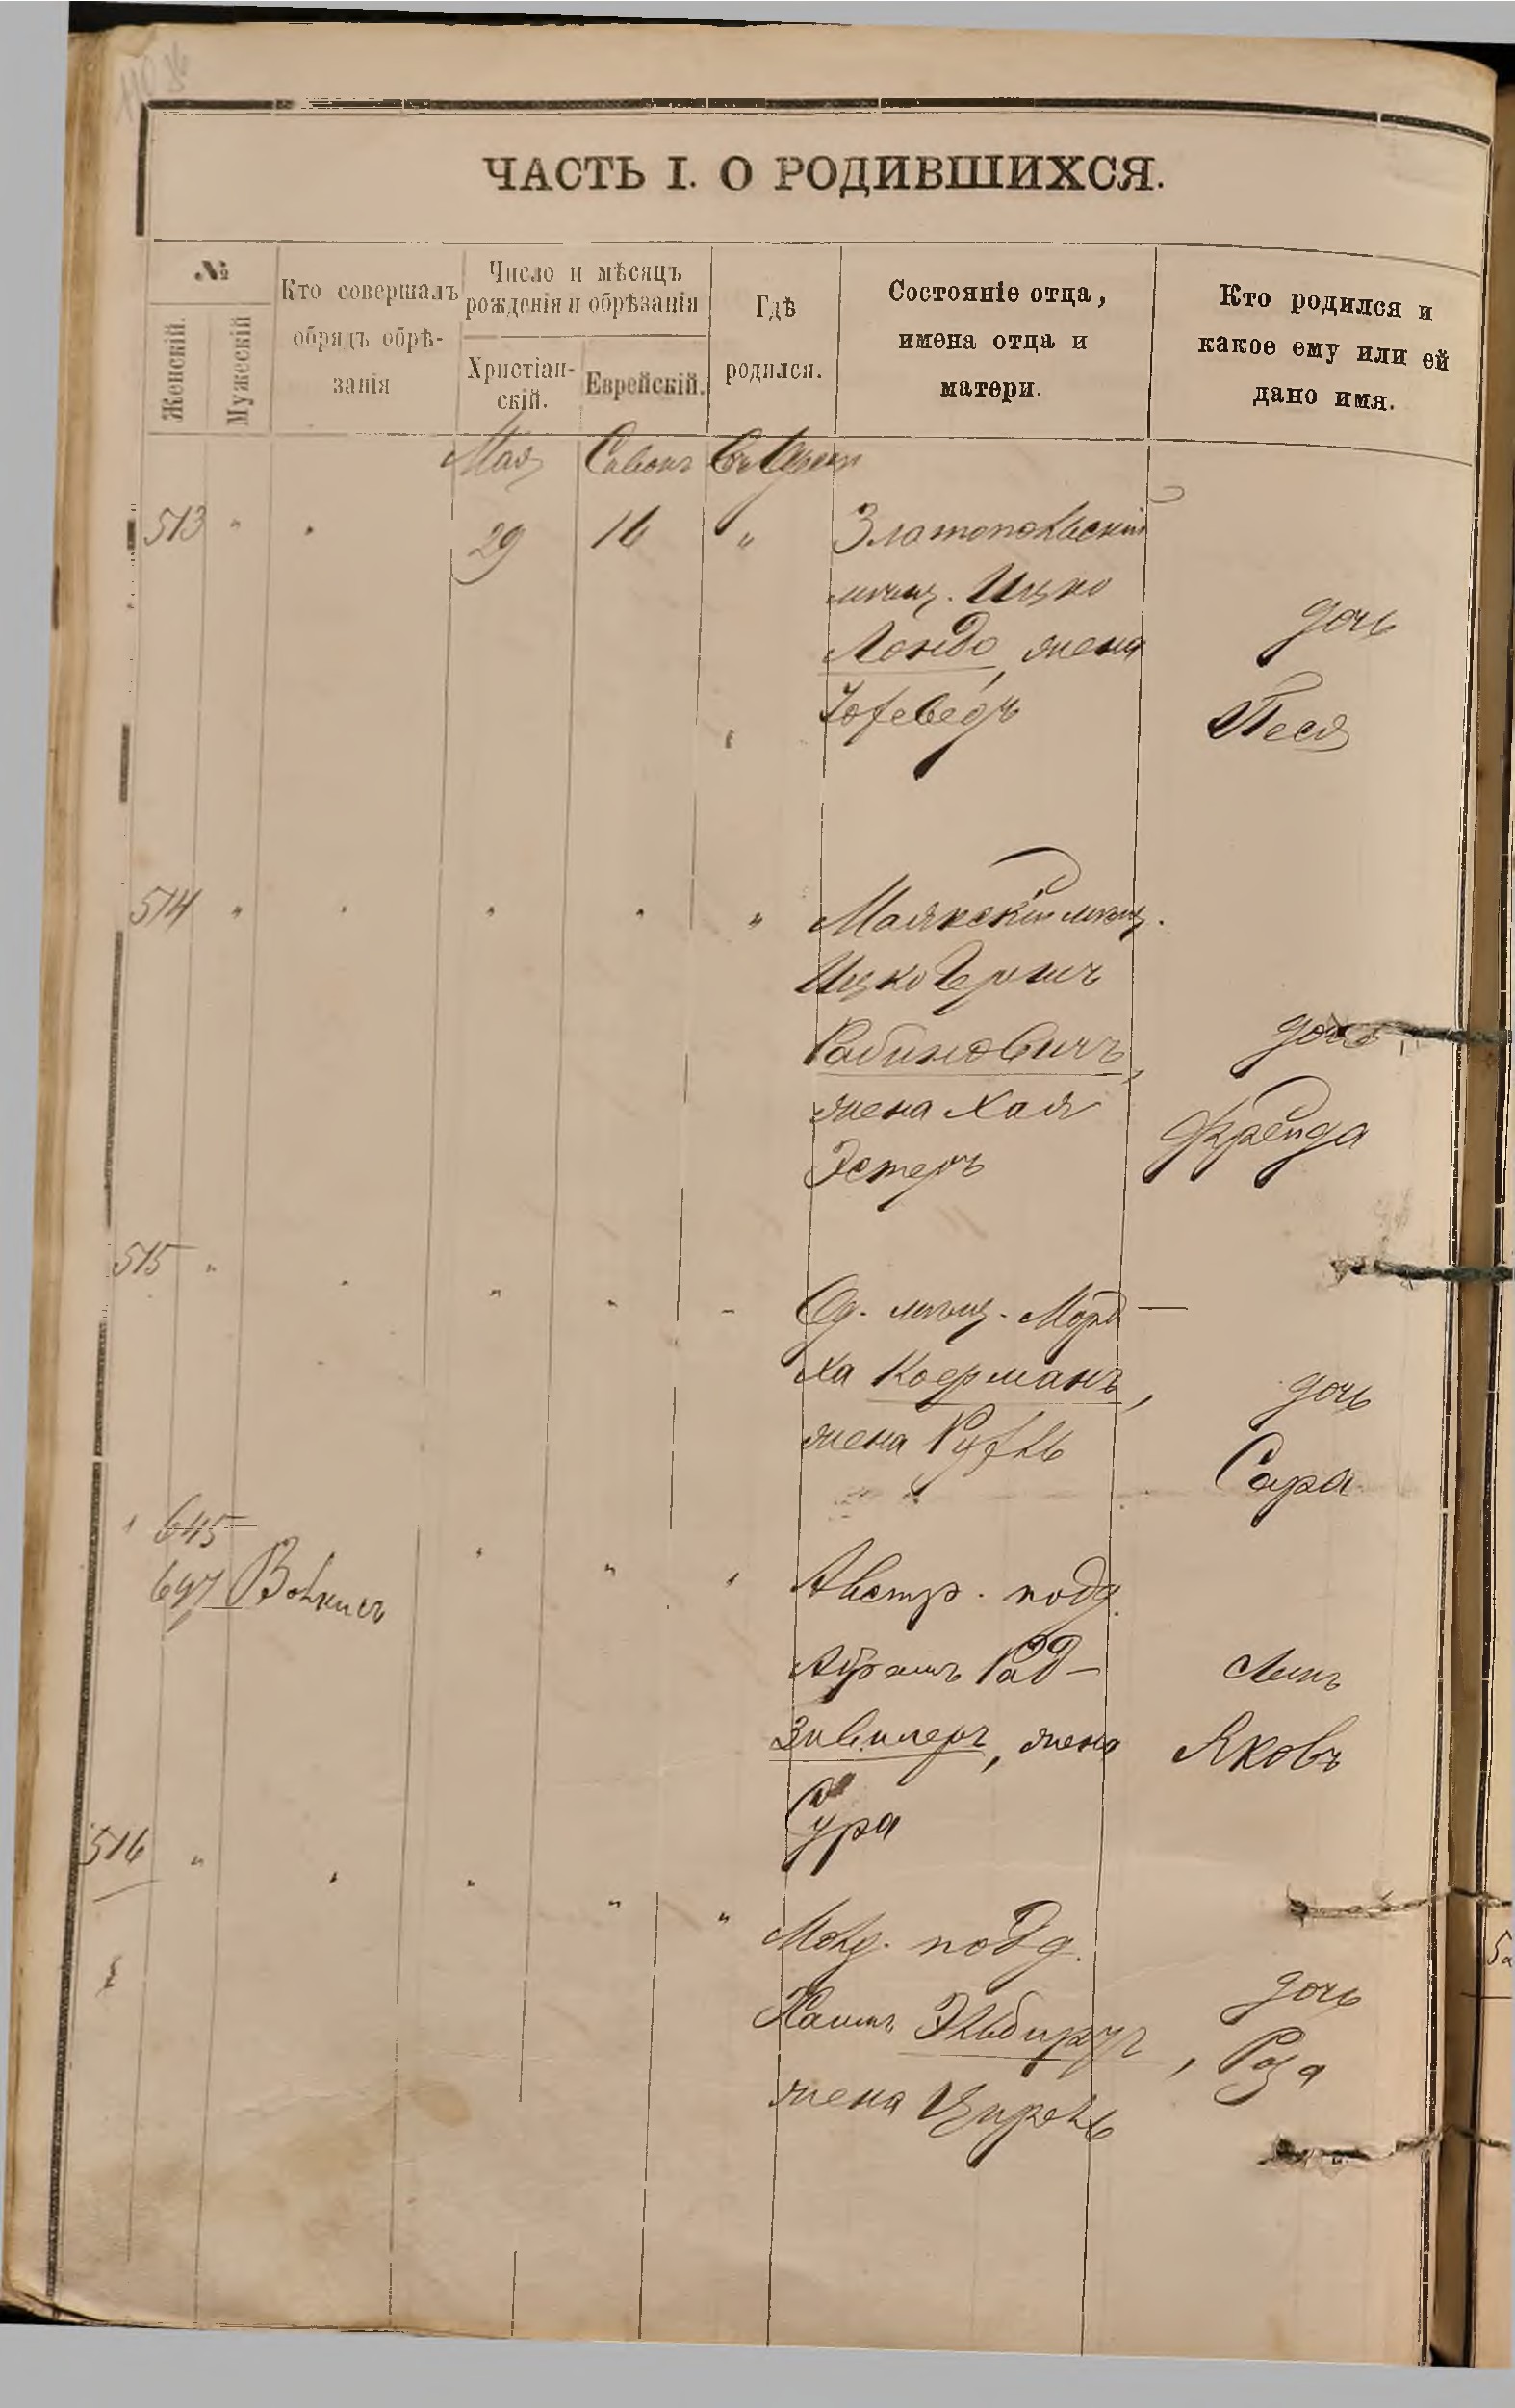 ЧАСТЬ I. О РОДИВШИХСЯ.
№
Женскій.
Мужескій
Кто совершалъ
обрядъ обрѣ-
занія
Число и мѣсяцъ
рожденія и обрѣзанія
Христіан-
скій.
Еврейскій.
Гдѣ
родился.
Состояніе отца,
имена отца и
матери.
Кто родился и
какое ему или ей
дано имя.
Мая Сивонъ
513 " " 29 16 " Златопольскій
мѣщ. Ицко
Лондо, жена
дочь
Песя
514 " " " " " Маякскій мѣщ.
Ицко Гершъ
Рабиновичъ,
жена Хая
Эстеръ
дочь
Фрейда
515 " " " " - Од. мѣщ. Морд-
ха Кофманъ,
жена Рухль
дочь
Сара
645
647 " " " Австр. подд.
Абрамъ Рад-
зивилеръ, жена
Сура
Яковъ
516 " " " " " Молд. подд.
Хаимъ
жена
дочь
Роза